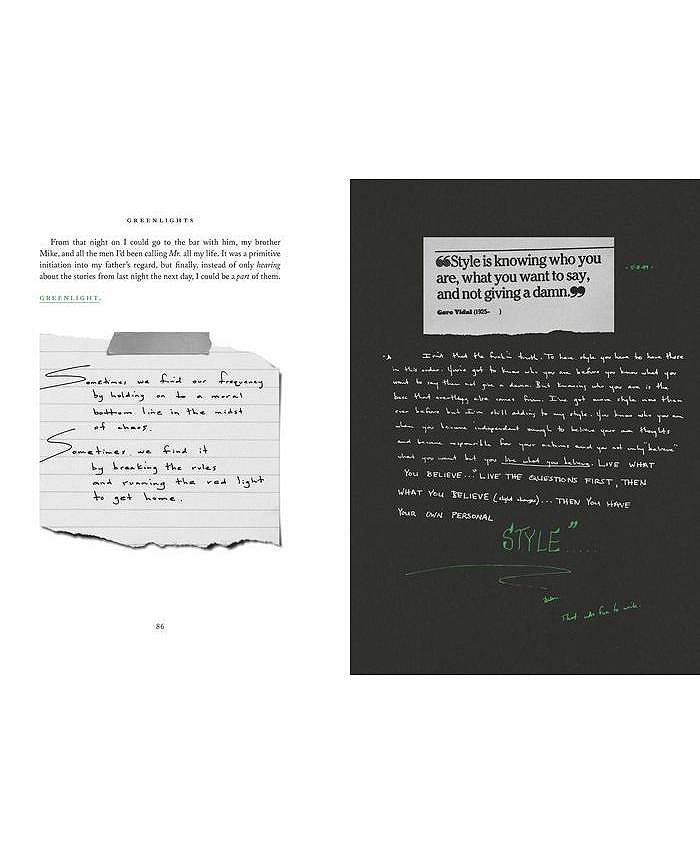 GREENLIGHTS
From that night on I could go to the bar with him, my brother
Mike, and all the men I'd been calling Mr. all my life. It was a primitive
initiation into my father's regard, but finally, instead of only hearing
about the stories from last night the next day, I could be a part of them.
GREENLIGHT.
Sometimes we find our frequency
by holding on to a moral
bottom line in the midst
of chaos.
Sometimes we find it
by breaking the rules
and running the red light
to get home.
86
“Style is knowing who you
are, what you want to say,
and not giving a damn.”
Gore Vidal (1925- )
Isn't that the truth. To have style you have to have these
in this order. You've got to know who you are before you know what you
want to say then not give a damn. But knowing who you are is the
base that everything else comes from. I've got more style now than
ever before but I'm still adding to my style. You know who you are
when you become independent enough to believe your own thoughts
and become responsible for your actions and you not only "believe"
what you want but you live what you believe. LIVE WHAT
YOU BELIEVE..." LIVE THE QUESTIONS FIRST, THEN
WHAT YOU BELIEVE (slight change)... THEN YOU HAVE
YOUR OWN PERSONAL
STYLE".....
That was fun to write.